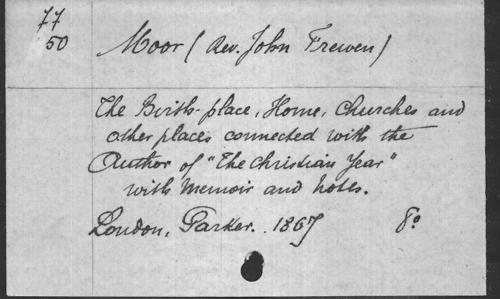 77
50
Moor (Rev. John Frewen)
The Birth-place, Home, Churches and
other places connected with the
Author of "The Christian Year"
with Memoir and notes.
London, Parker. 1867 8°